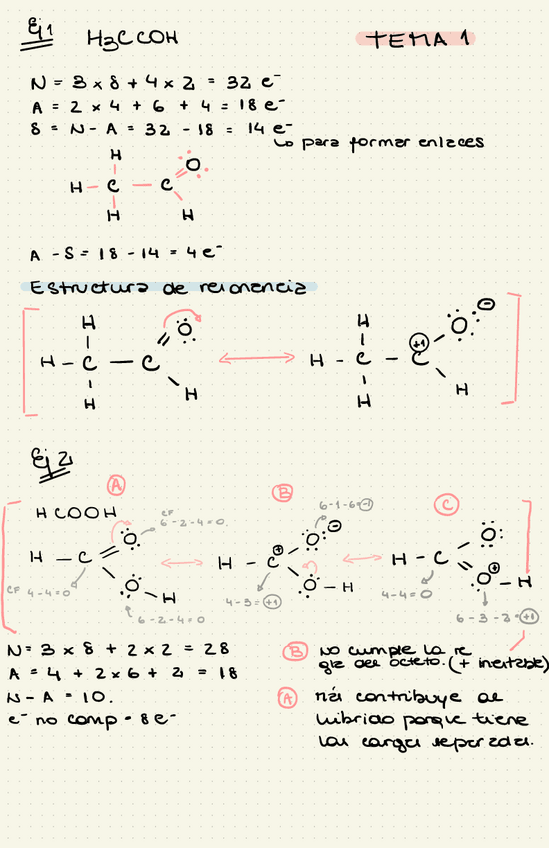 Ej 1 H3CCOH TEMA 1
N = 3 x 8 + 4 x 2 = 32 e⁻
A = 2 x 4 + 6 + 4 = 18 e⁻
S = N - A = 32 - 18 = 14 e⁻
↳ para formar enlaces
H
O
H - C - C
H H
A - S = 18 - 14 = 4 e⁻
Estructura de resonancia
H H O ⊖
O +1
H - C - C H - C - C
H H H H
Ej 2
A B C
HCOOH CF 6-2-4=0. 6-1-6=-1
O O ⊖ O
H - C H - C ⊕ H - C
O H O - H O ⊕ - H
CF 4-4=0 4-3=+1 4-4=0
6-2-4=0 6-3-2=+1
N = 3 x 8 + 2 x 2 = 28
A = 4 + 2 x 6 + 2 = 18
N - A = 10.
e⁻ no comp = 8 e⁻
B no cumple la re
gla del octeto. (+ inestable)
A más contribuye al
híbrido porque tiene
las cargas separadas.